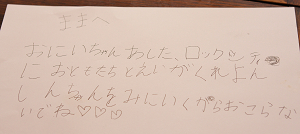 ままへ
おにいちゃんあした、ロックンティ
におともたちとえいがくれよん
しんちゃんをみにいくからおこらな
いでね♡♡♡